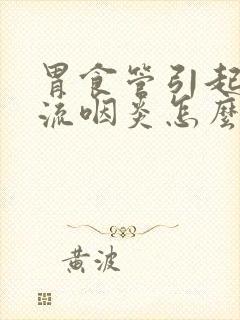 胃食管引起
流咽炎怎麼
黄波